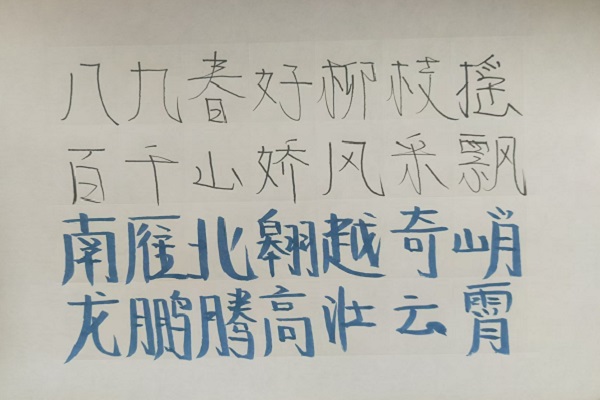 八九春好柳枝摇
百千山娇风采飘
南雁北翱越奇峭
龙鹏腾高壮云霄